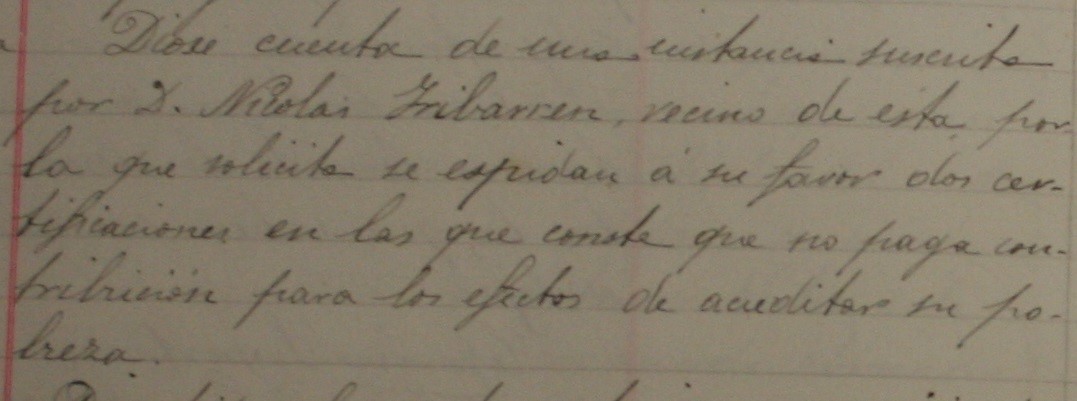 Diose cuenta de una instancia suscrita
por D. Nicolás Iribarren, vecino de esta, por
la que solicita se espidan á su favor dos cer-
tificaciones en las que conste que no paga con-
tribución para los efectos de acreditar su po-
breza.